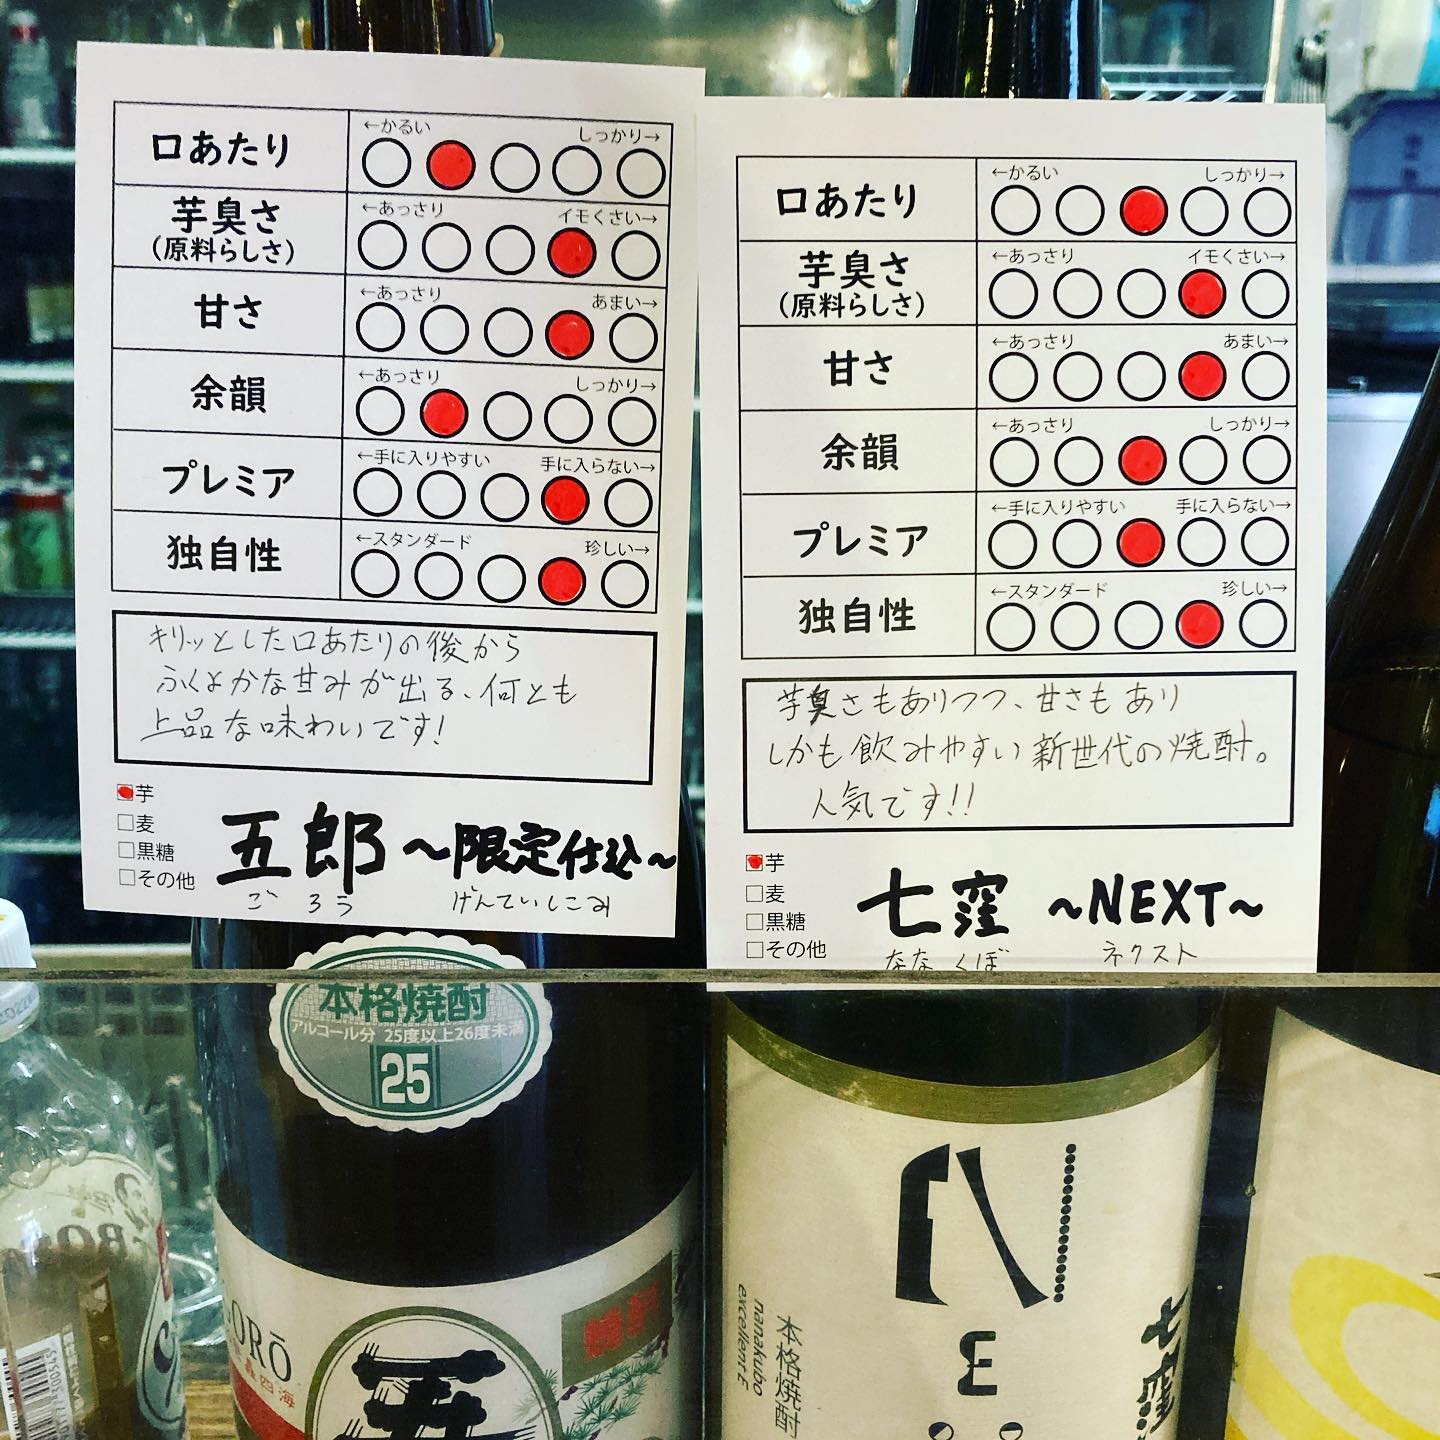 口あたり
←かるい しっかり→
芋臭さ
(原料らしさ)
←あっさり イモくさい→
甘さ
←あっさり あまい→
余韻
←あっさり しっかり→
プレミア
←手に入りやすい 手に入らない→
独自性
←スタンダード 珍しい→
キリッとした口あたりの後から
ふくよかな甘みが出る、何とも
上品な味わいです!
芋
麦
黒糖
その他
五郎 〜限定仕込〜
ごろう げんていしこみ
口あたり
←かるい しっかり→
芋臭さ
(原料らしさ)
←あっさり イモくさい→
甘さ
←あっさり あまい→
余韻
←あっさり しっかり→
プレミア
←手に入りやすい 手に入らない→
独自性
←スタンダード 珍しい→
芋臭さもありつつ、甘さもあり
しかも飲みやすい新世代の焼酎。
人気です!!
芋
麦
黒糖
その他
七窪 〜NEXT〜
ななくぼ ネクスト
本格焼酎
アルコール分 25度以上26度未満
25
GORŌ
四海
五
N
E
本格焼酎
nanakubo
excellent E
七窪